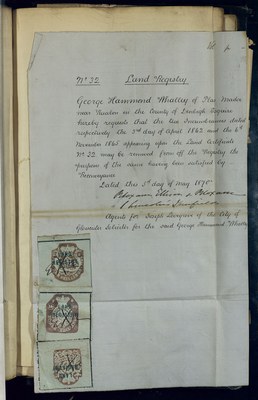 No 32 Land Registry
George Hammond Whalley of Plas Madoc
near Ruabon in the County of Denbigh Esquire
hereby requests that the two Incumbrances dated
respectively the 2nd day of April 1863 and the 6th
November 1861 appearing upon the Land Certificate
No 32 may be removed from off the Registry the
purpose of the same having been satisfied by
Dated this 5th day of May 1870
Agents for Joseph of the City of
Gloucester Solicitor for the said George Hammond Whalley